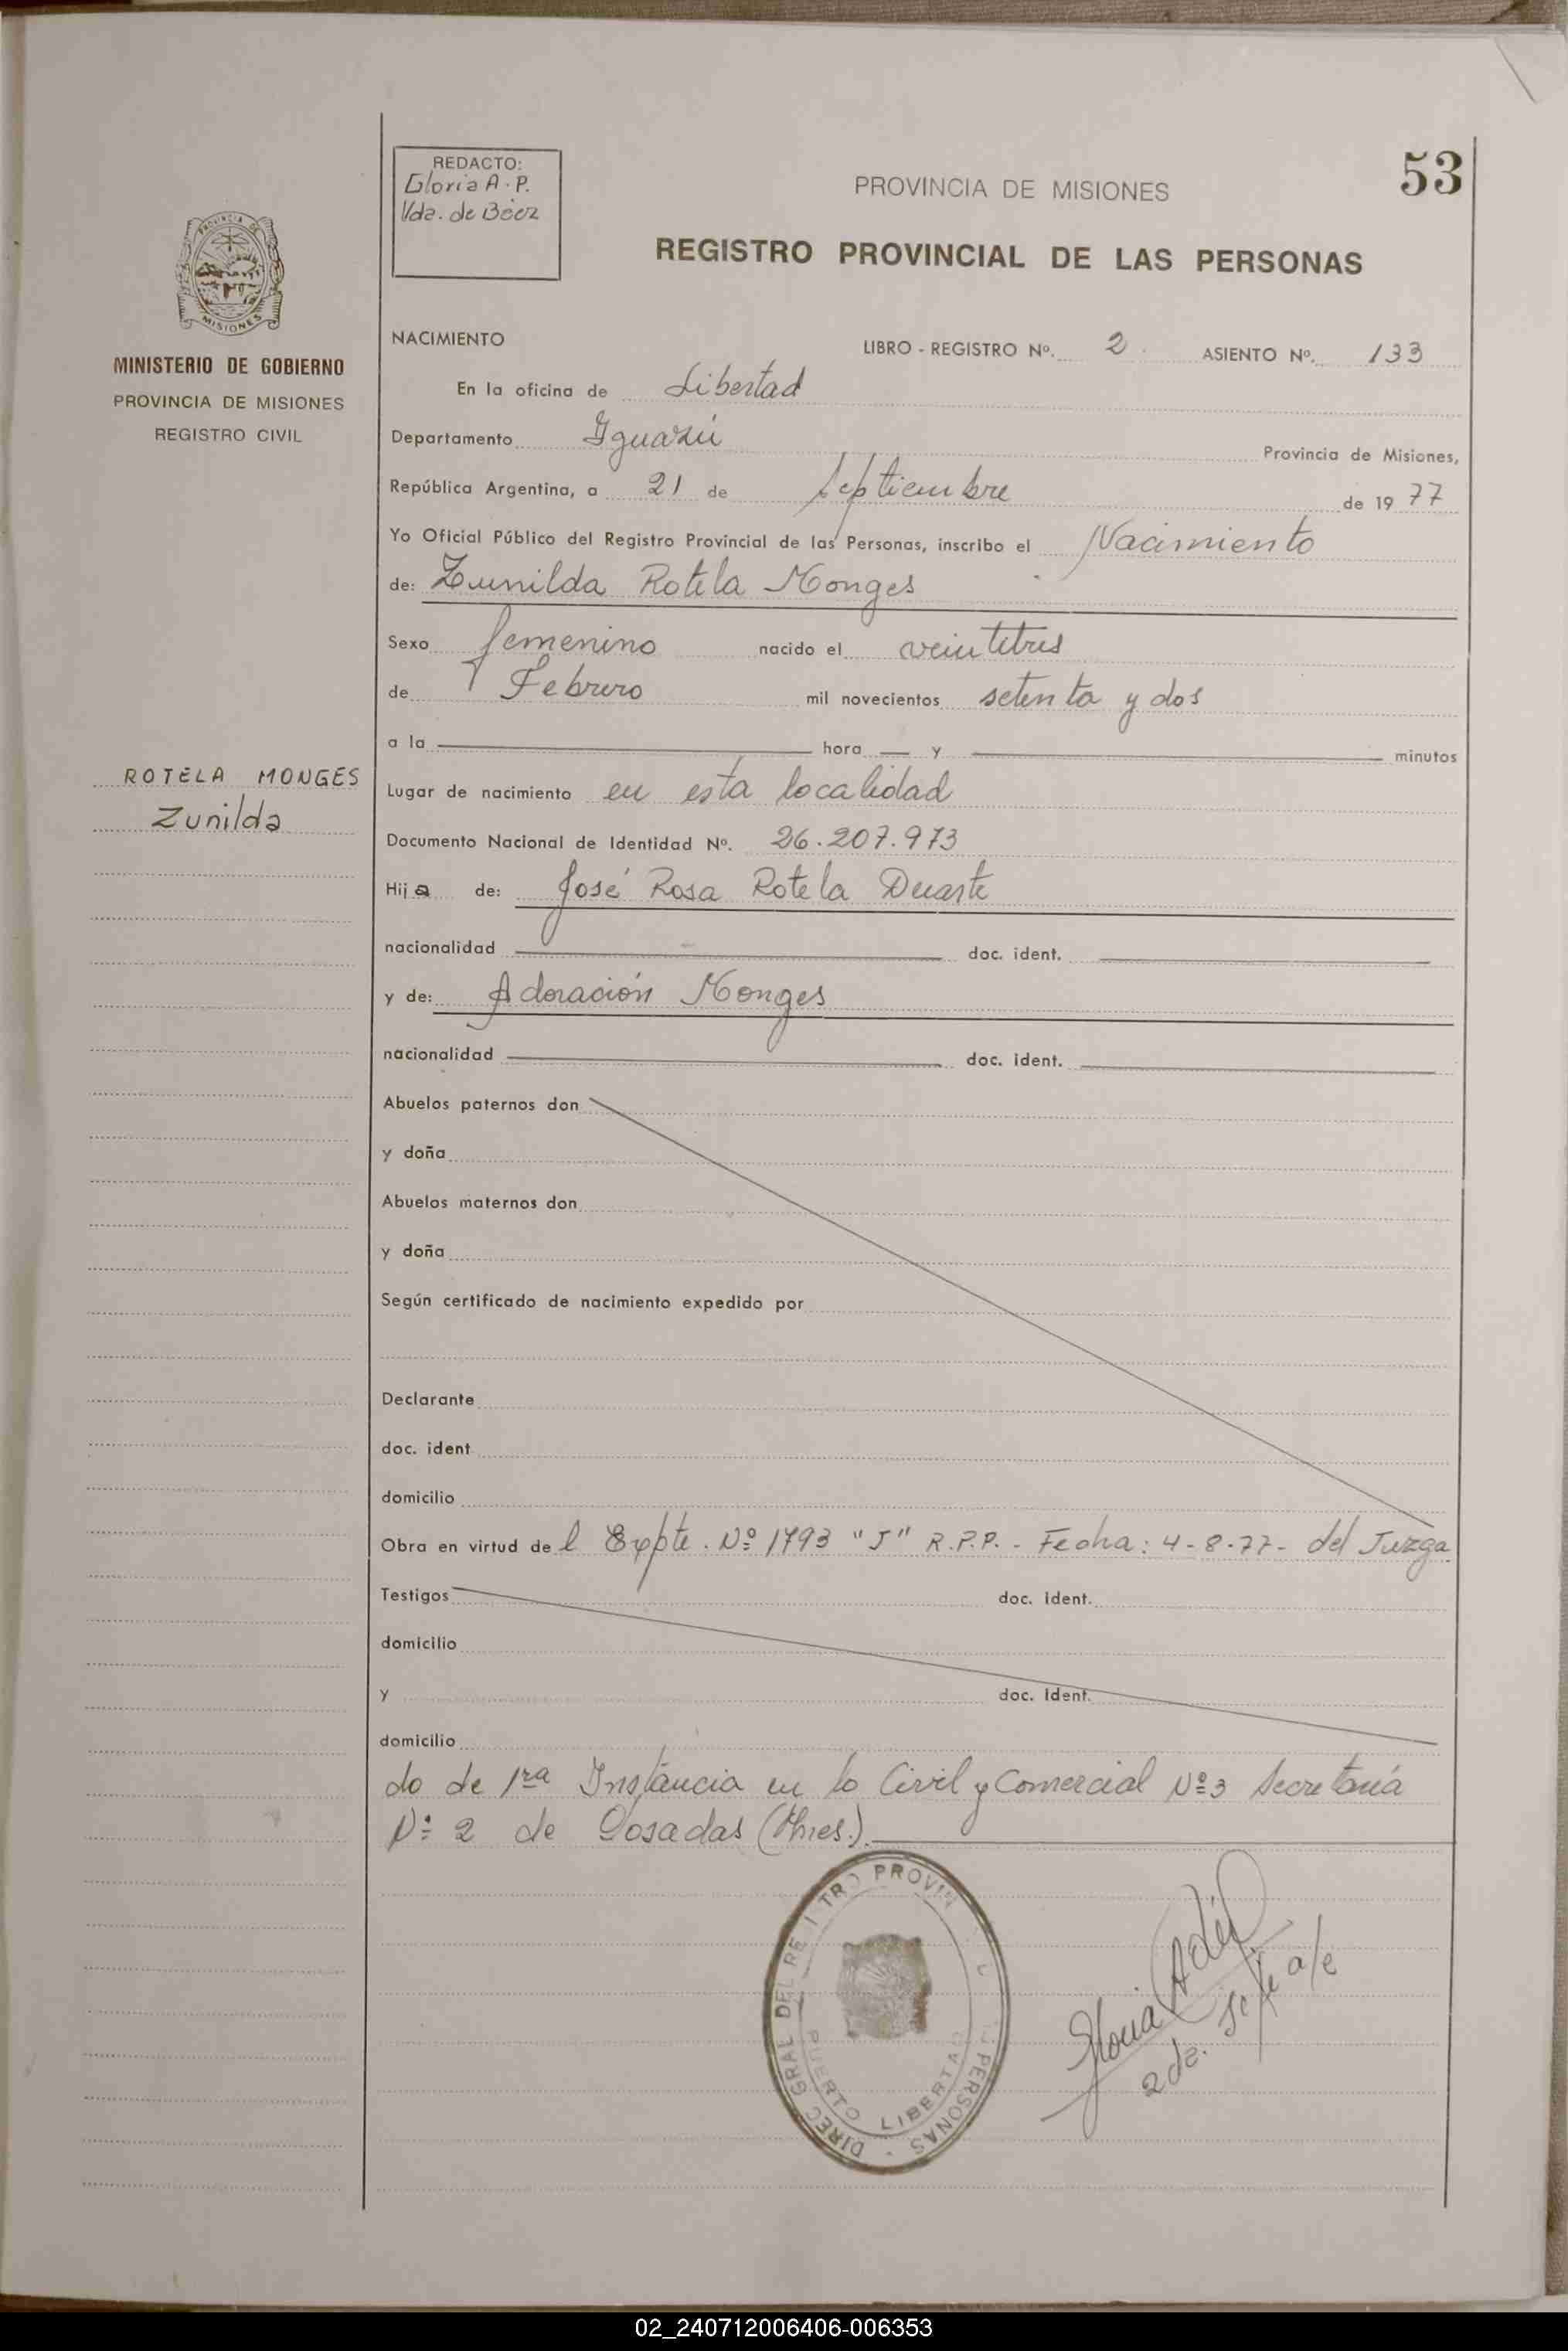 53
REDACTO:
Gloria A. P.
Vda. de Báez
PROVINCIA DE MISIONES
REGISTRO PROVINCIAL DE LAS PERSONAS
PROVINCIA DE
MISIONES
MINISTERIO DE GOBIERNO
PROVINCIA DE MISIONES
REGISTRO CIVIL
NACIMIENTO
LIBRO - REGISTRO Nº. 2. ASIENTO Nº. 133
En la oficina de Libertad
Departamento Iguazú Provincia de Misiones,
República Argentina, a 21 de Septiembre de 1977
Yo Oficial Público del Registro Provincial de las Personas, inscribo el Nacimiento
de: Zunilda Rotela Monges
Sexo femenino nacido el veintitres
de Febrero mil novecientos setenta y dos
a la hora y minutos
ROTELA MONGES
Zunilda
Lugar de nacimiento en esta localidad
Documento Nacional de Identidad Nº. 26.207.973
Hija de: José Rosa Rotela Duarte
nacionalidad doc. ident.
y de: Adoración Monges
nacionalidad doc. ident.
Abuelos paternos don
y doña
Abuelos maternos don
y doña
Según certificado de nacimiento expedido por
Declarante
doc. ident
domicilio
Obra en virtud del Expte. Nº 1793 "J" R.P.P. - Fecha: 4-8-77- del Juzga
Testigos doc. ident.
domicilio
y doc. ident.
domicilio
do de 1ra Instancia en lo Civil y Comercial Nº 3 Secretaría
Nº 2 de Posadas (Mnes.).
DIREC GRAL DEL RE I TRO PROVIN L PERSONAS -
PUERTO LIBERTAD
Gloria Adel
Jefe a/c
02_240712006406-006353